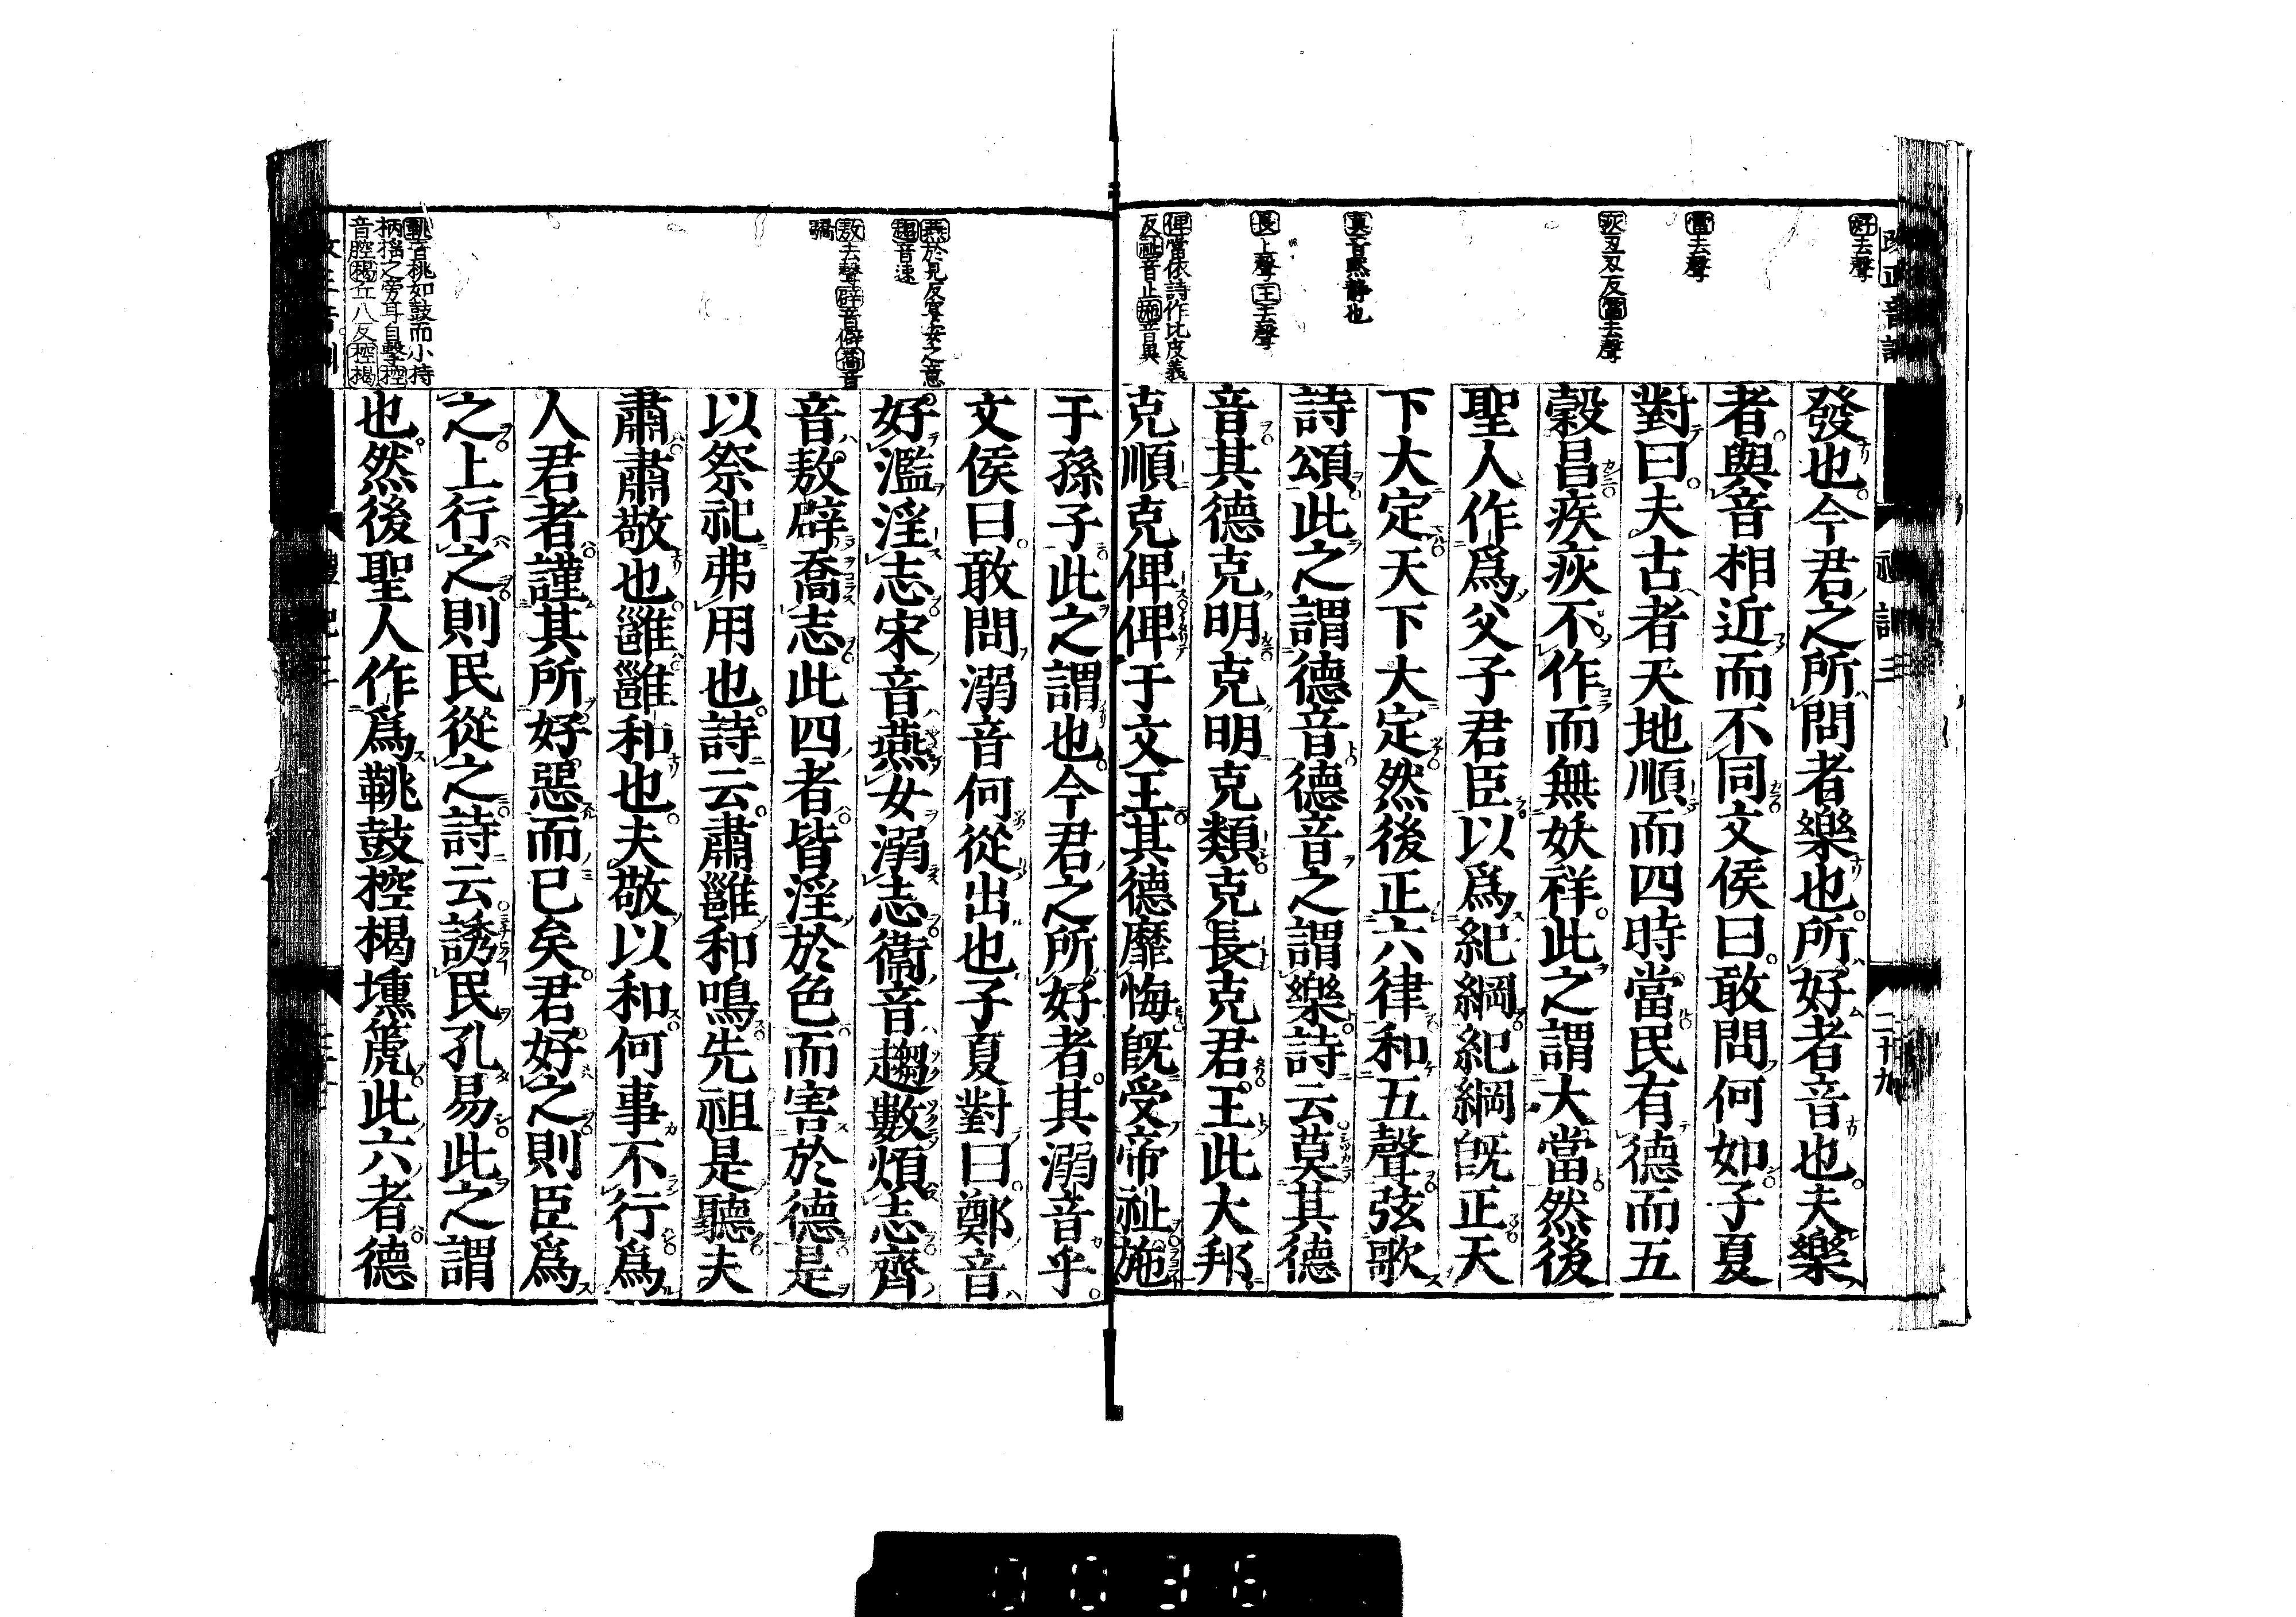 好去聲
當去聲
疢丑刄反當去聲
莫音黙靜也
長上聲王去聲
俾當依詩作比皮義
反祉音止施音異
發也今君之所問者樂也所好者音也夫樂
者與音相近而不同文侯曰敢問何如子夏
對曰夫古者天地順而四時當民有德而五
穀昌疾疢不作而無妖祥此之謂大當然後
聖人作爲父子君臣以爲紀綱紀綱旣正天
下大定天下大定然後正六律和五聲弦歌
詩頌此之謂德音德音之謂樂詩云莫其德
音其德克明克明克類克長克君王此大邦
克順克俾俾于文王其德靡悔旣受帝祉施
燕於見反宴安之意
趨音速
敖去聲辟音僻喬音
驕
鞉音桃如鼓而小持
柄揺之旁耳自擊控
音腔楬丘八反控楬
于孫子此之謂也今君之所好者其溺音乎
文侯曰敢問溺音何從出也子夏對曰鄭音
好濫淫志宋音燕女溺志衞音趨數煩志齊
音敖辟喬志此四者皆淫於色而害於德是
以祭祀弗用也詩云肅雝和鳴先祖是聽夫
肅肅敬也雝雝和也夫敬以和何事不行爲
人君者謹其所好惡而已矣君好之則臣爲
之上行之則民從之詩云誘民孔易此之謂
也然後聖人作爲鞉鼓控楬壎篪此六者德
二十九